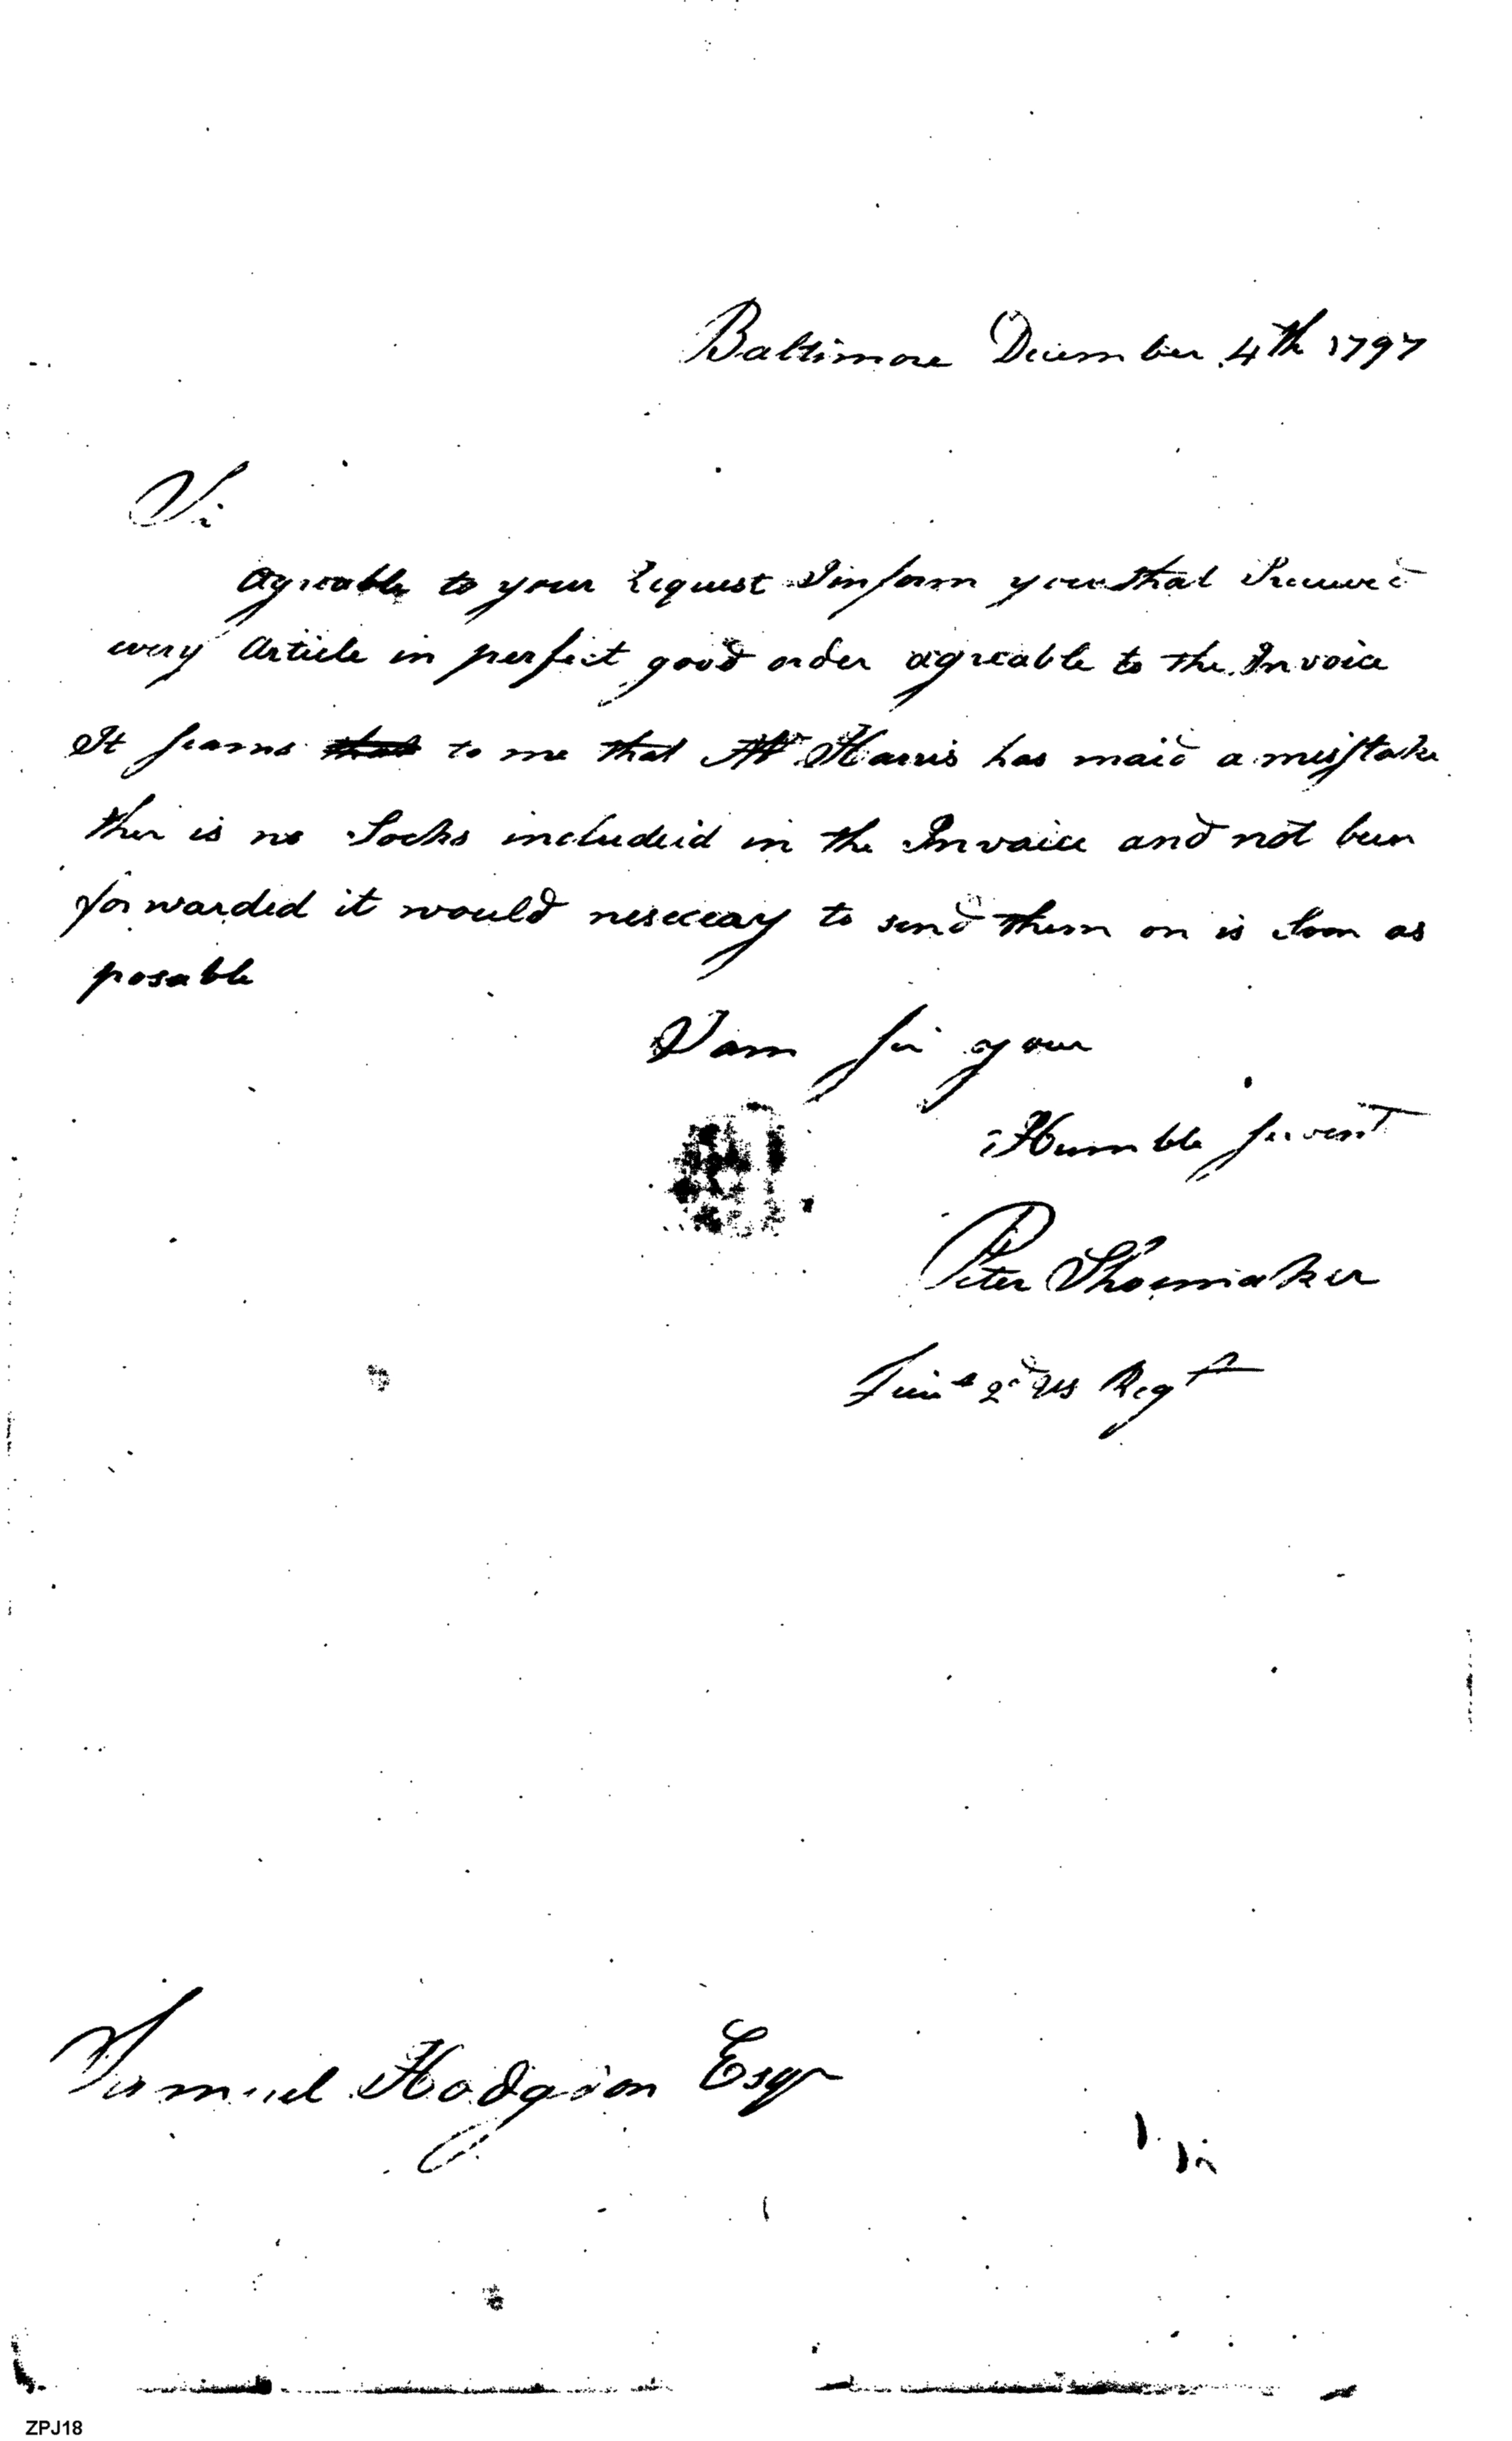 Baltimore December 4th 1797
Sir
agreable to your Request I inform you that I Received
every Article in perfect good order agreable to the Invoice
It seams that to me that Mr Harris has maid a misstake
ther is no Socks includeid in the Invoice and not been
forwarded it would neseceay to send them on is soon as
posable
I am Sir your
Humble Servent
Peter Shoemaker
Lieut 2d US Regt
Samuel Hodgson Esqr
ZPJ18